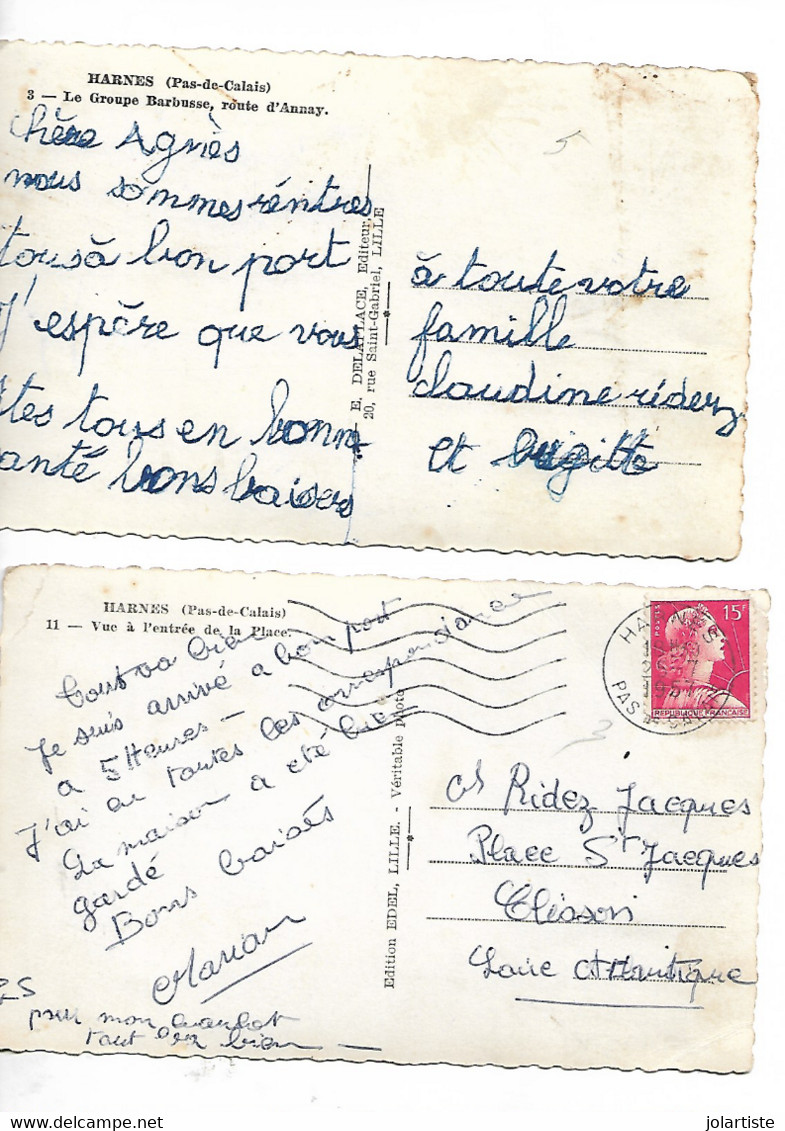 HARNES (Pas-de-Calais)
3 — Le Groupe Barbusse, route d'Annay.
5
chère Agnès
nous sommes réntres
tous à bon port
J'espère que vous
êtes tous en bonne
santé bons baisers
E. DELAPLACE, Editeur,
20, rue Saint-Gabriel, LILLE
à toute votre
famille
claudine réderz
et brigitte
HARNES (Pas-de-Calais)
11 — Vue à l'entrée de la Place.
Tout va bien
Je suis arrivé a bon port
a 5 Heures -
J'ai eu toutes les correspondances
La maison a été bien
gardé
Bons baisés
Maman
PS
pour mon
tout va bien —
Edition EDEL, LILLE. - Véritable Photo
HARNES
PAS DE CALAIS
15F
POSTES
REPUBLIQUE FRANÇAISE
3
M Ridez Jacques
Place St Jacques
Clisson
Loire Atlantique
delcampe.net
jolartiste